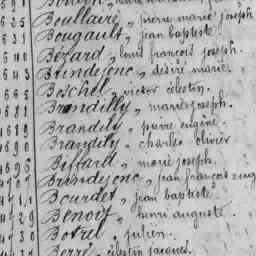 Boullaire, pierre marie joseph
Bougault, jean baptiste
Bézard, louis françois joseph.
Brindejonc, désiré marie.
Boschel, victor célestin.
Brandilly, marie joseph.
Brandily, pierre eugène.
Brandily, charles olivier
Biffard, marie joseph.
Brindejonc, jean françois eug
Bourdet, jean baptiste
4729 Benoît, henri auguste.
4730 Botrel, julien.
Berré, célestin jacques.